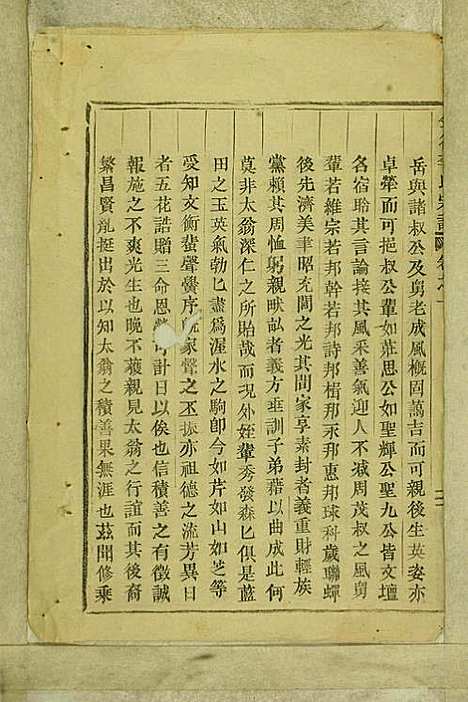 岳與諸叔公及舅老成風概固藹吉而可親後生英姿亦
卓犖而可挹叔公輩如莊思公如聖輝公聖九公皆文壇
名宿聆其言論接其風采善氣迎人不减周茂叔之風舅
輩若維宗若邦幹若邦詩邦楫邦永邦惠邦球科歲聯蟬
後先濟美聿昭充閭之光其間家享素封者義重財輕族
黨賴其周恤躬親畎畝者義方垂訓子弟藉以曲成此何
莫非太翁深仁之所貽哉而况外姪輩秀發森匕俱是藍
田之玉英氣勃匕盡爲渥水之駒卽今如芹如山如芝等
受知文衡蜚聲黌序家聲之丕振亦祖德之流芳異日
者五花誥贈三命恩榮可計日以俟也信積善之有徵誠
報施之不爽光生也晚不穫親見太翁之行誼而其後裔
繁昌賢胤挺出於以知太翁之積善果無涯也茲聞修乘